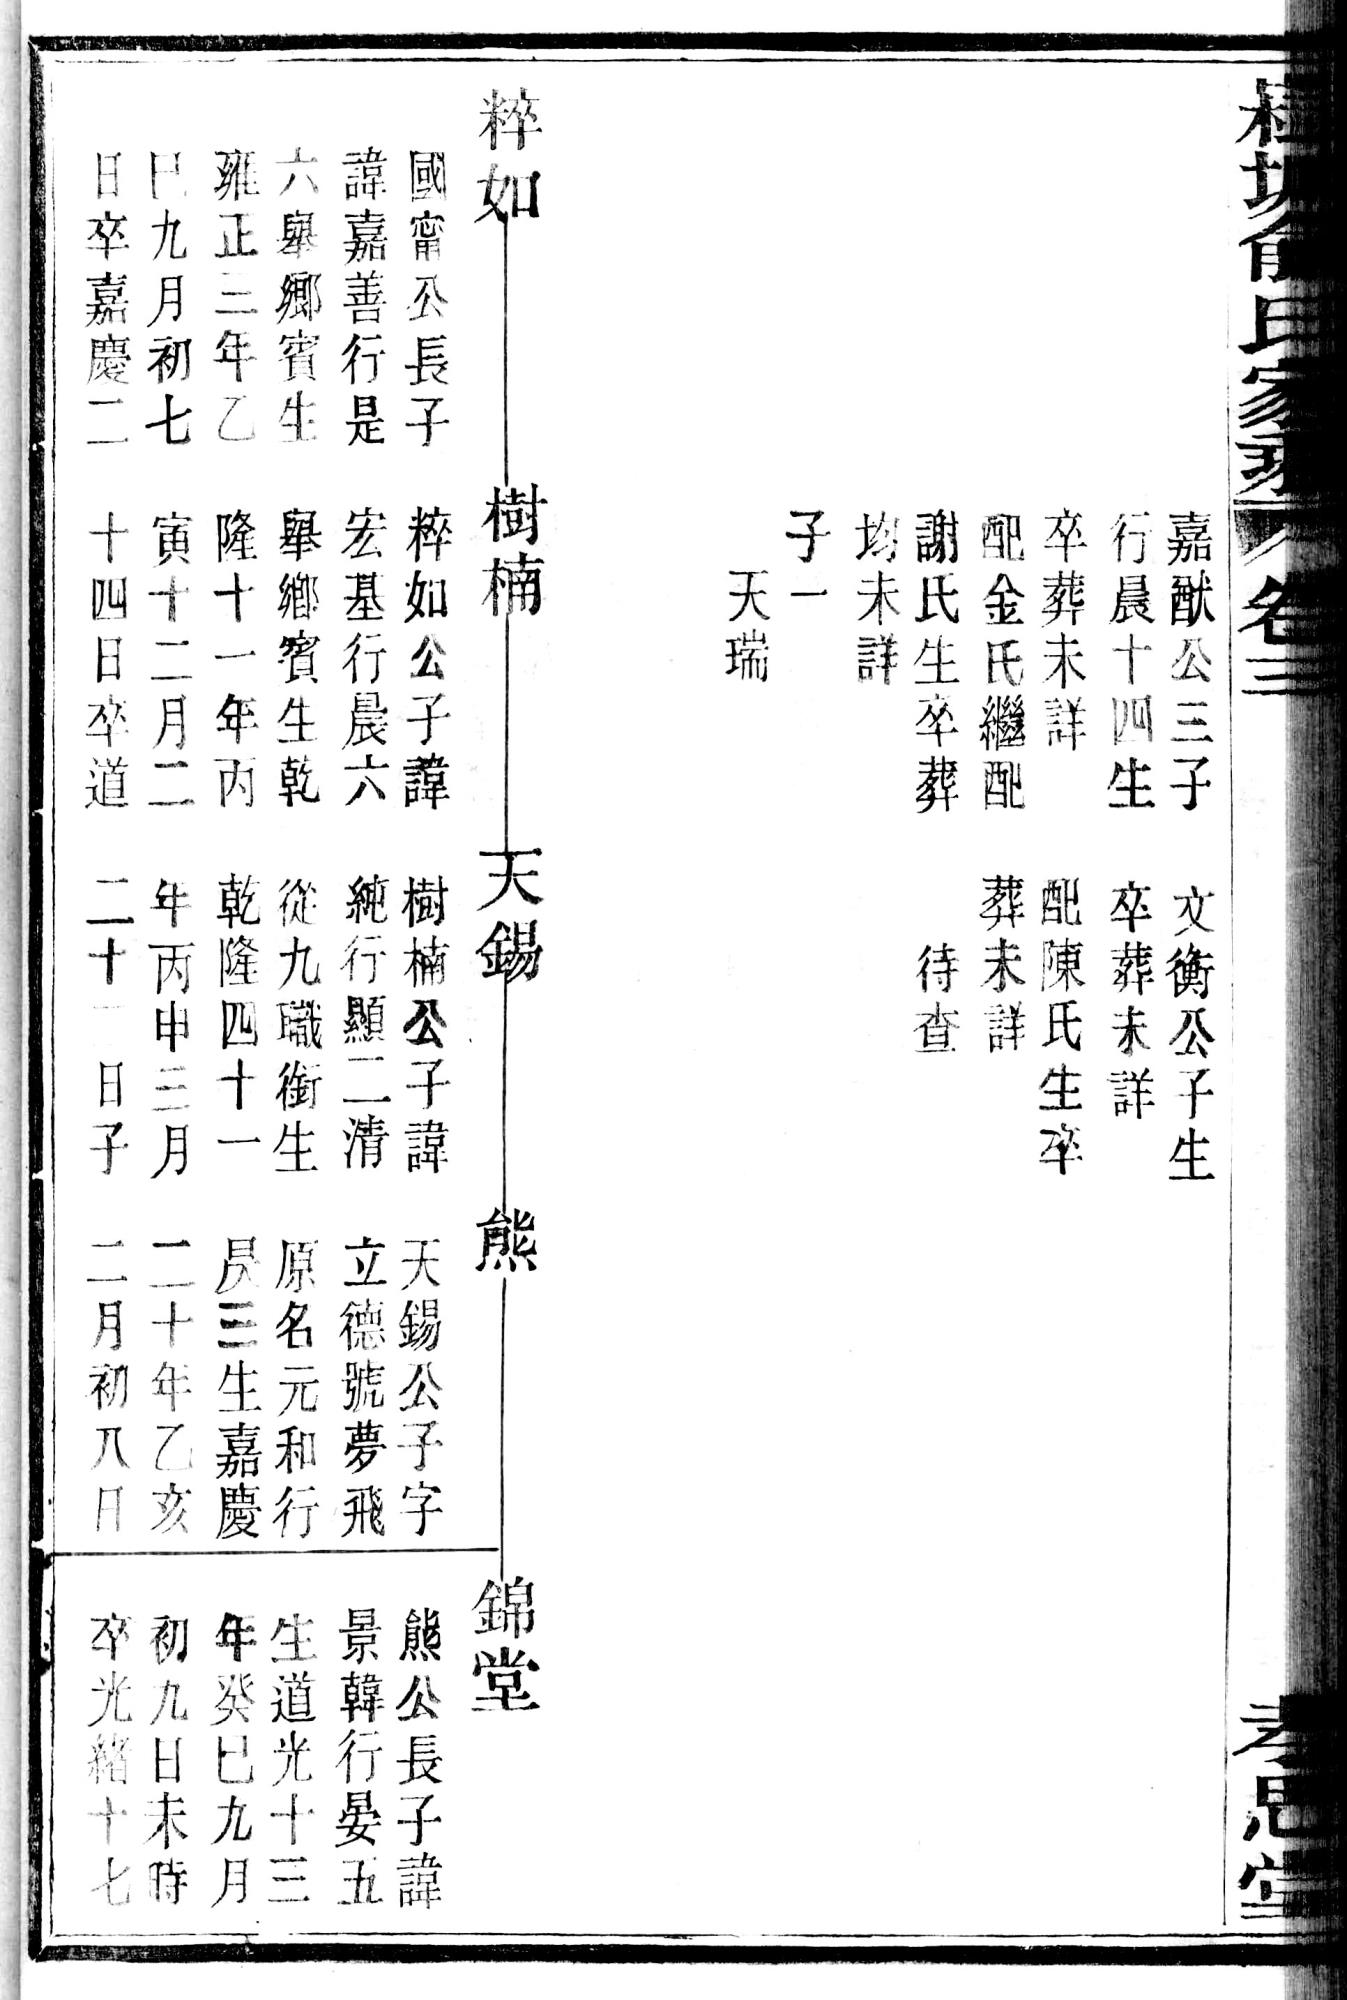 氏家乘
卷三
孝思堂
嘉猷公三子
行晨十四生
卒葬未詳
配金氏繼配
謝氏生卒葬
均未詳
子一
天瑞
文衡公子生
卒葬未詳
配陳氏生卒
葬未詳
待查
粹如
國甯公長子
諱嘉善行是
六舉鄉賓生
雍正三年乙
巳九月初七
日卒嘉慶二
樹楠
粹如公子諱
宏基行晨六
舉鄉賓生乾
隆十一年丙
寅十二月二
十四日卒道
天錫
樹楠公子諱
純行顯二清
從九職銜生
乾隆四十一
年丙申三月
二十一日子
熊
天錫公子字
立德號夢飛
原名元和行
昃三生嘉慶
二十年乙亥
二月初八日
錦堂
熊公長子諱
景韓行晏五
生道光十三
年癸巳九月
初九日未時
卒光緒十七